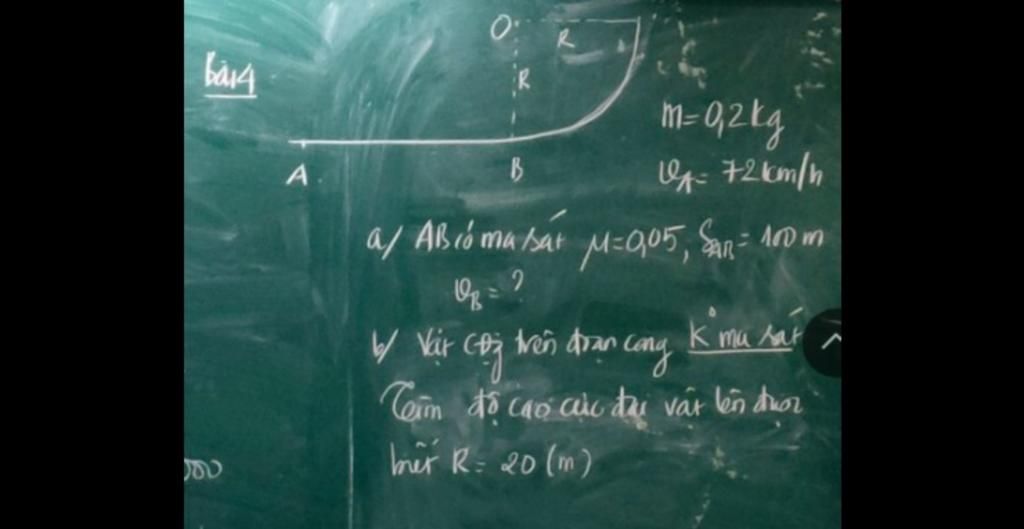 Bài 4
O
R
R
A
B
m = 0,2 kg
v_A = 72 km/h
a/ AB có ma sát μ = 0,05, S_AB = 100 m
v_B = ?
b/ Vật cđg trên đoạn cong k° ma sát
Tìm độ cao cực đại vật lên được
biết R = 20 (m)